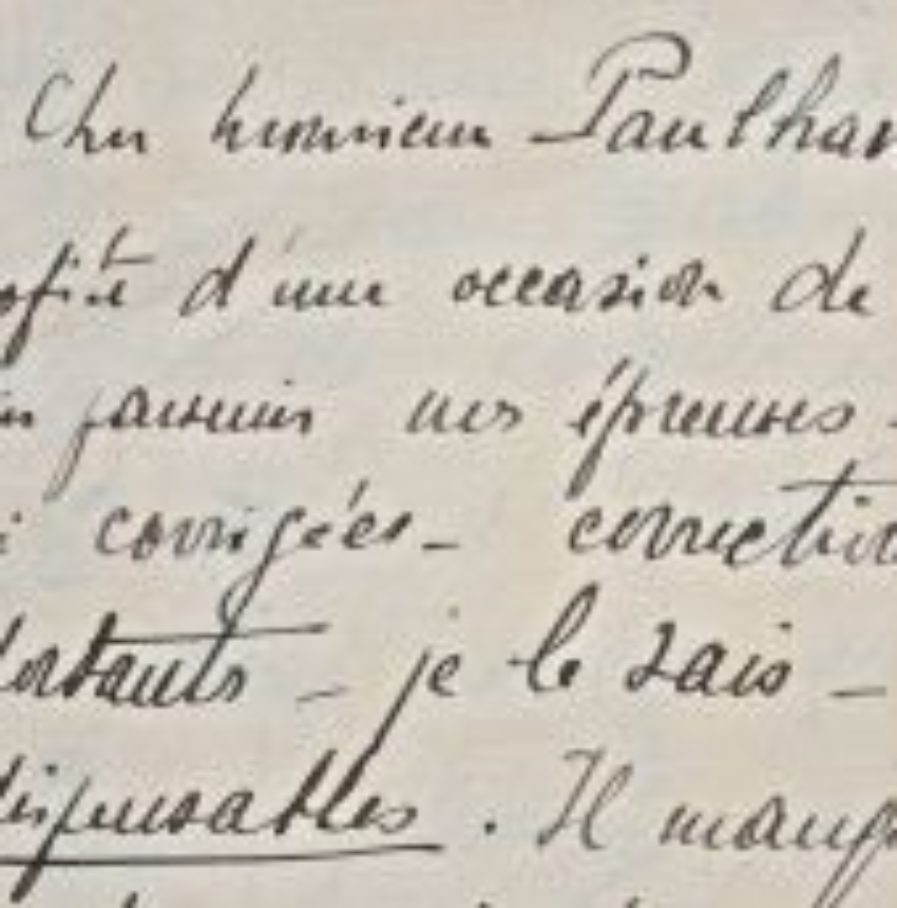 Cher monsieur Paulhan
ofite d'une occasion de
parvenir mes épreuves -
i corrigées - correctio
ortants - je le sais -
dispensables. Il manq